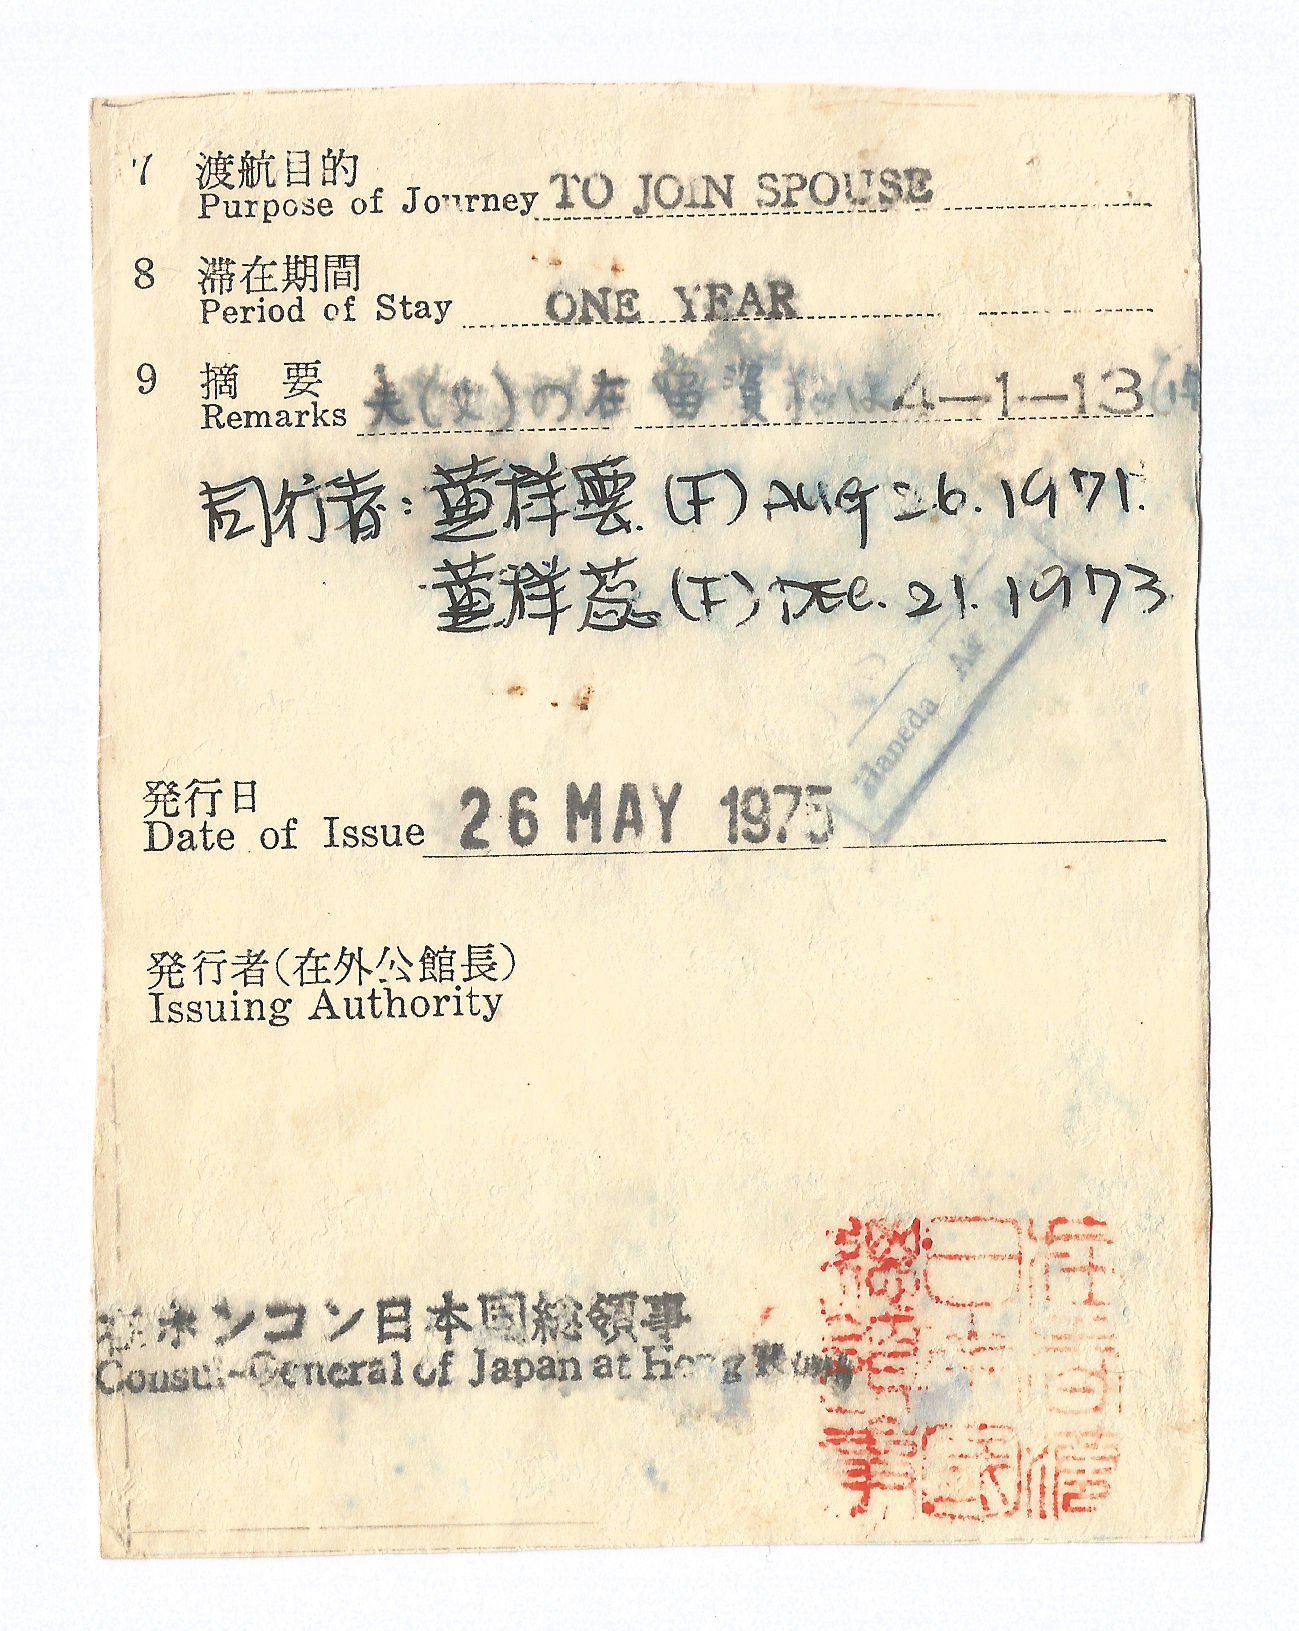 7 渡航目的
Purpose of Journey TO JOIN SPOUSE
8 滞在期間
Period of Stay ONE YEAR
9 摘要
Remarks 夫(父)の在留資格は4-1-13
同行者: 黄祥雲 (F) AUG 26. 1971.
黄祥蕊 (F) DEC. 21. 1973
Haneda
発行日
Date of Issue 26 MAY 1975
発行者(在外公館長)
Issuing Authority
在ホンコン日本国総領事
Consul-General of Japan at Hong Kong
在香港
日本国
総領事